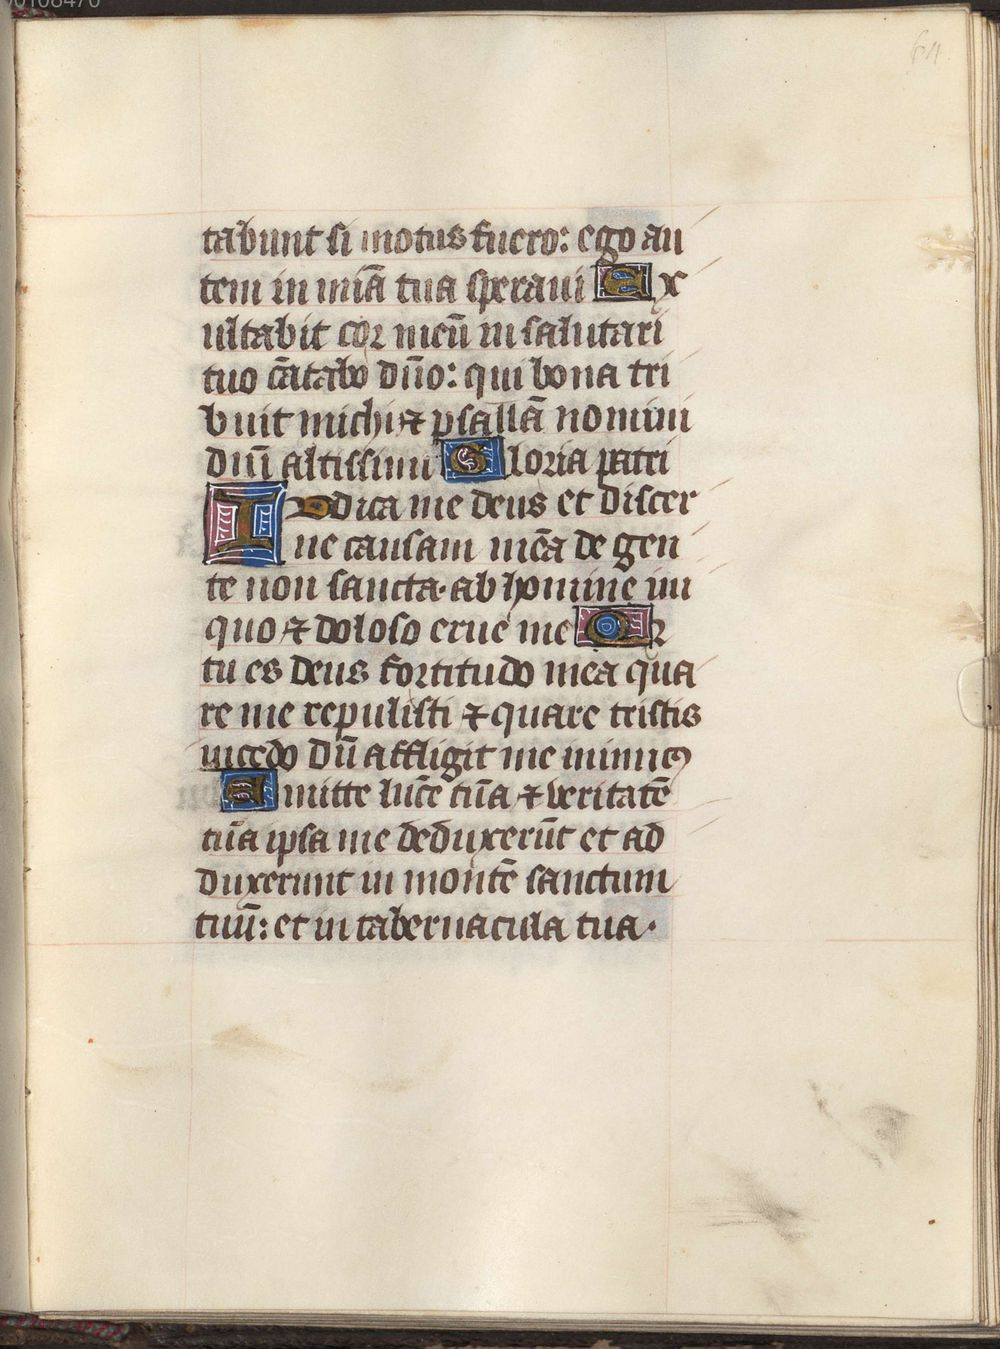 64
tabunt si motus fuero: ego au
tem in mīa tua speraui Ex
ultabit cor meū in salutari
tuo cātabo dño: qui bona tri
buit michi ⁊ psallā nomini
dñi altissimi Gloria patri
Iudica me deus et discer
ne causam meā de gen
te non sancta· ab homine ini
quo ⁊ doloso erue me Qr
tu es deus fortitudo mea qua
re me repulisti ⁊ quare tristis
incedo dū affligit me inimicꝰ
Emitte lucē tuā ⁊ veritatē
tuā ipsa me deduxerūt et ad
duxerunt in montē sanctum
tuū: et in tabernacula tua·